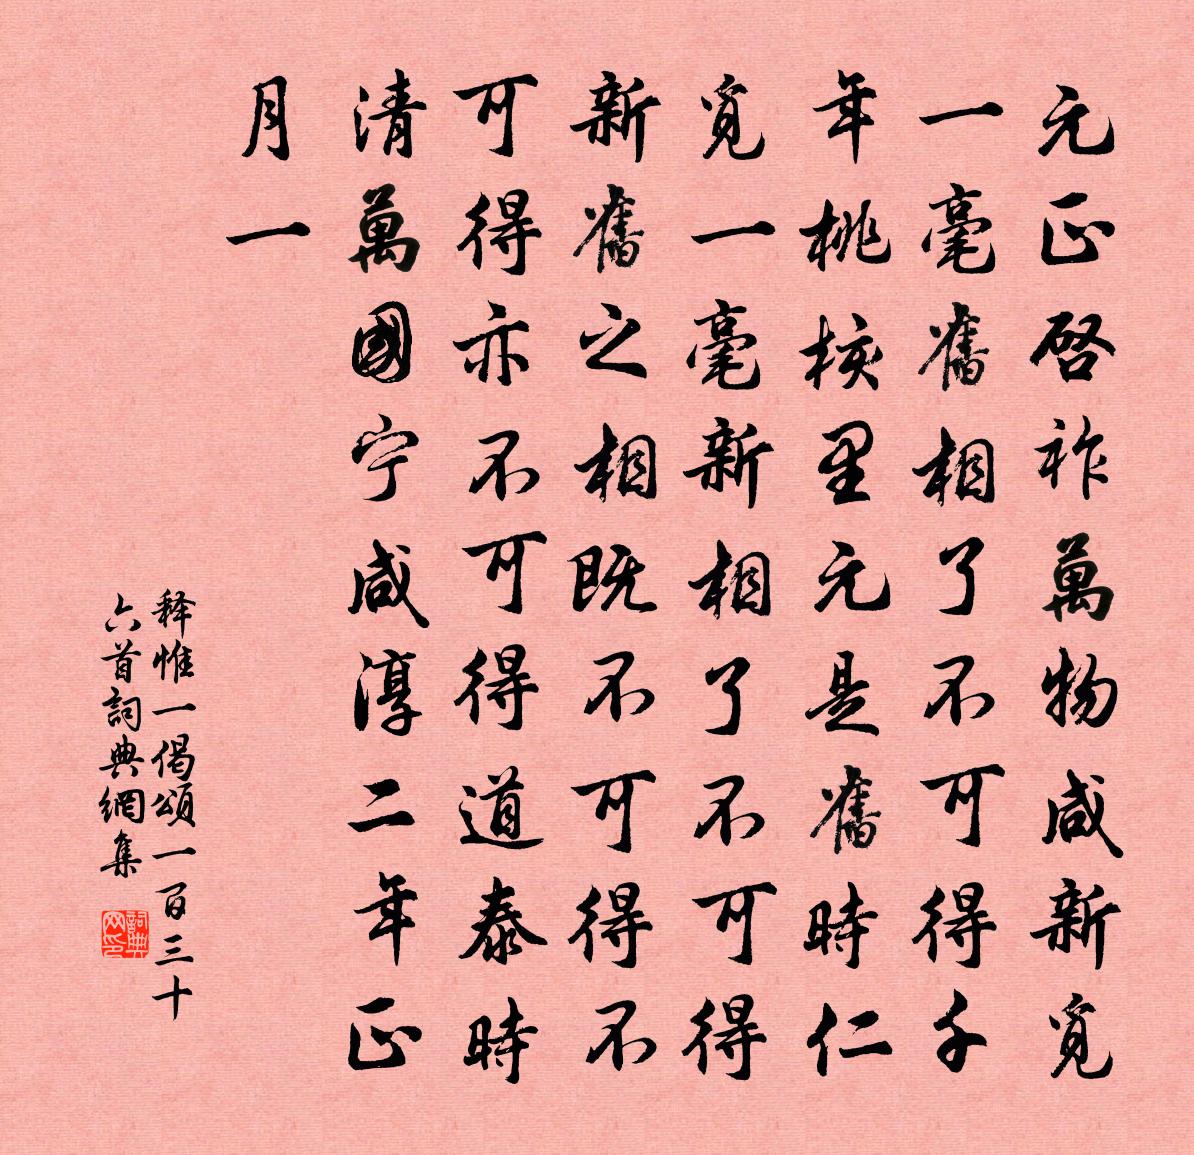 元正啓祚萬物咸新覓
一毫舊相了不可得千
年桃核里元是舊時仁
覓一毫新相了不可得
新舊之相既不可得不
可得亦不可得道泰時
清萬國宁咸淳二年正
月一
释惟一偈頌一百三十
六首詞典網集
詞典网印